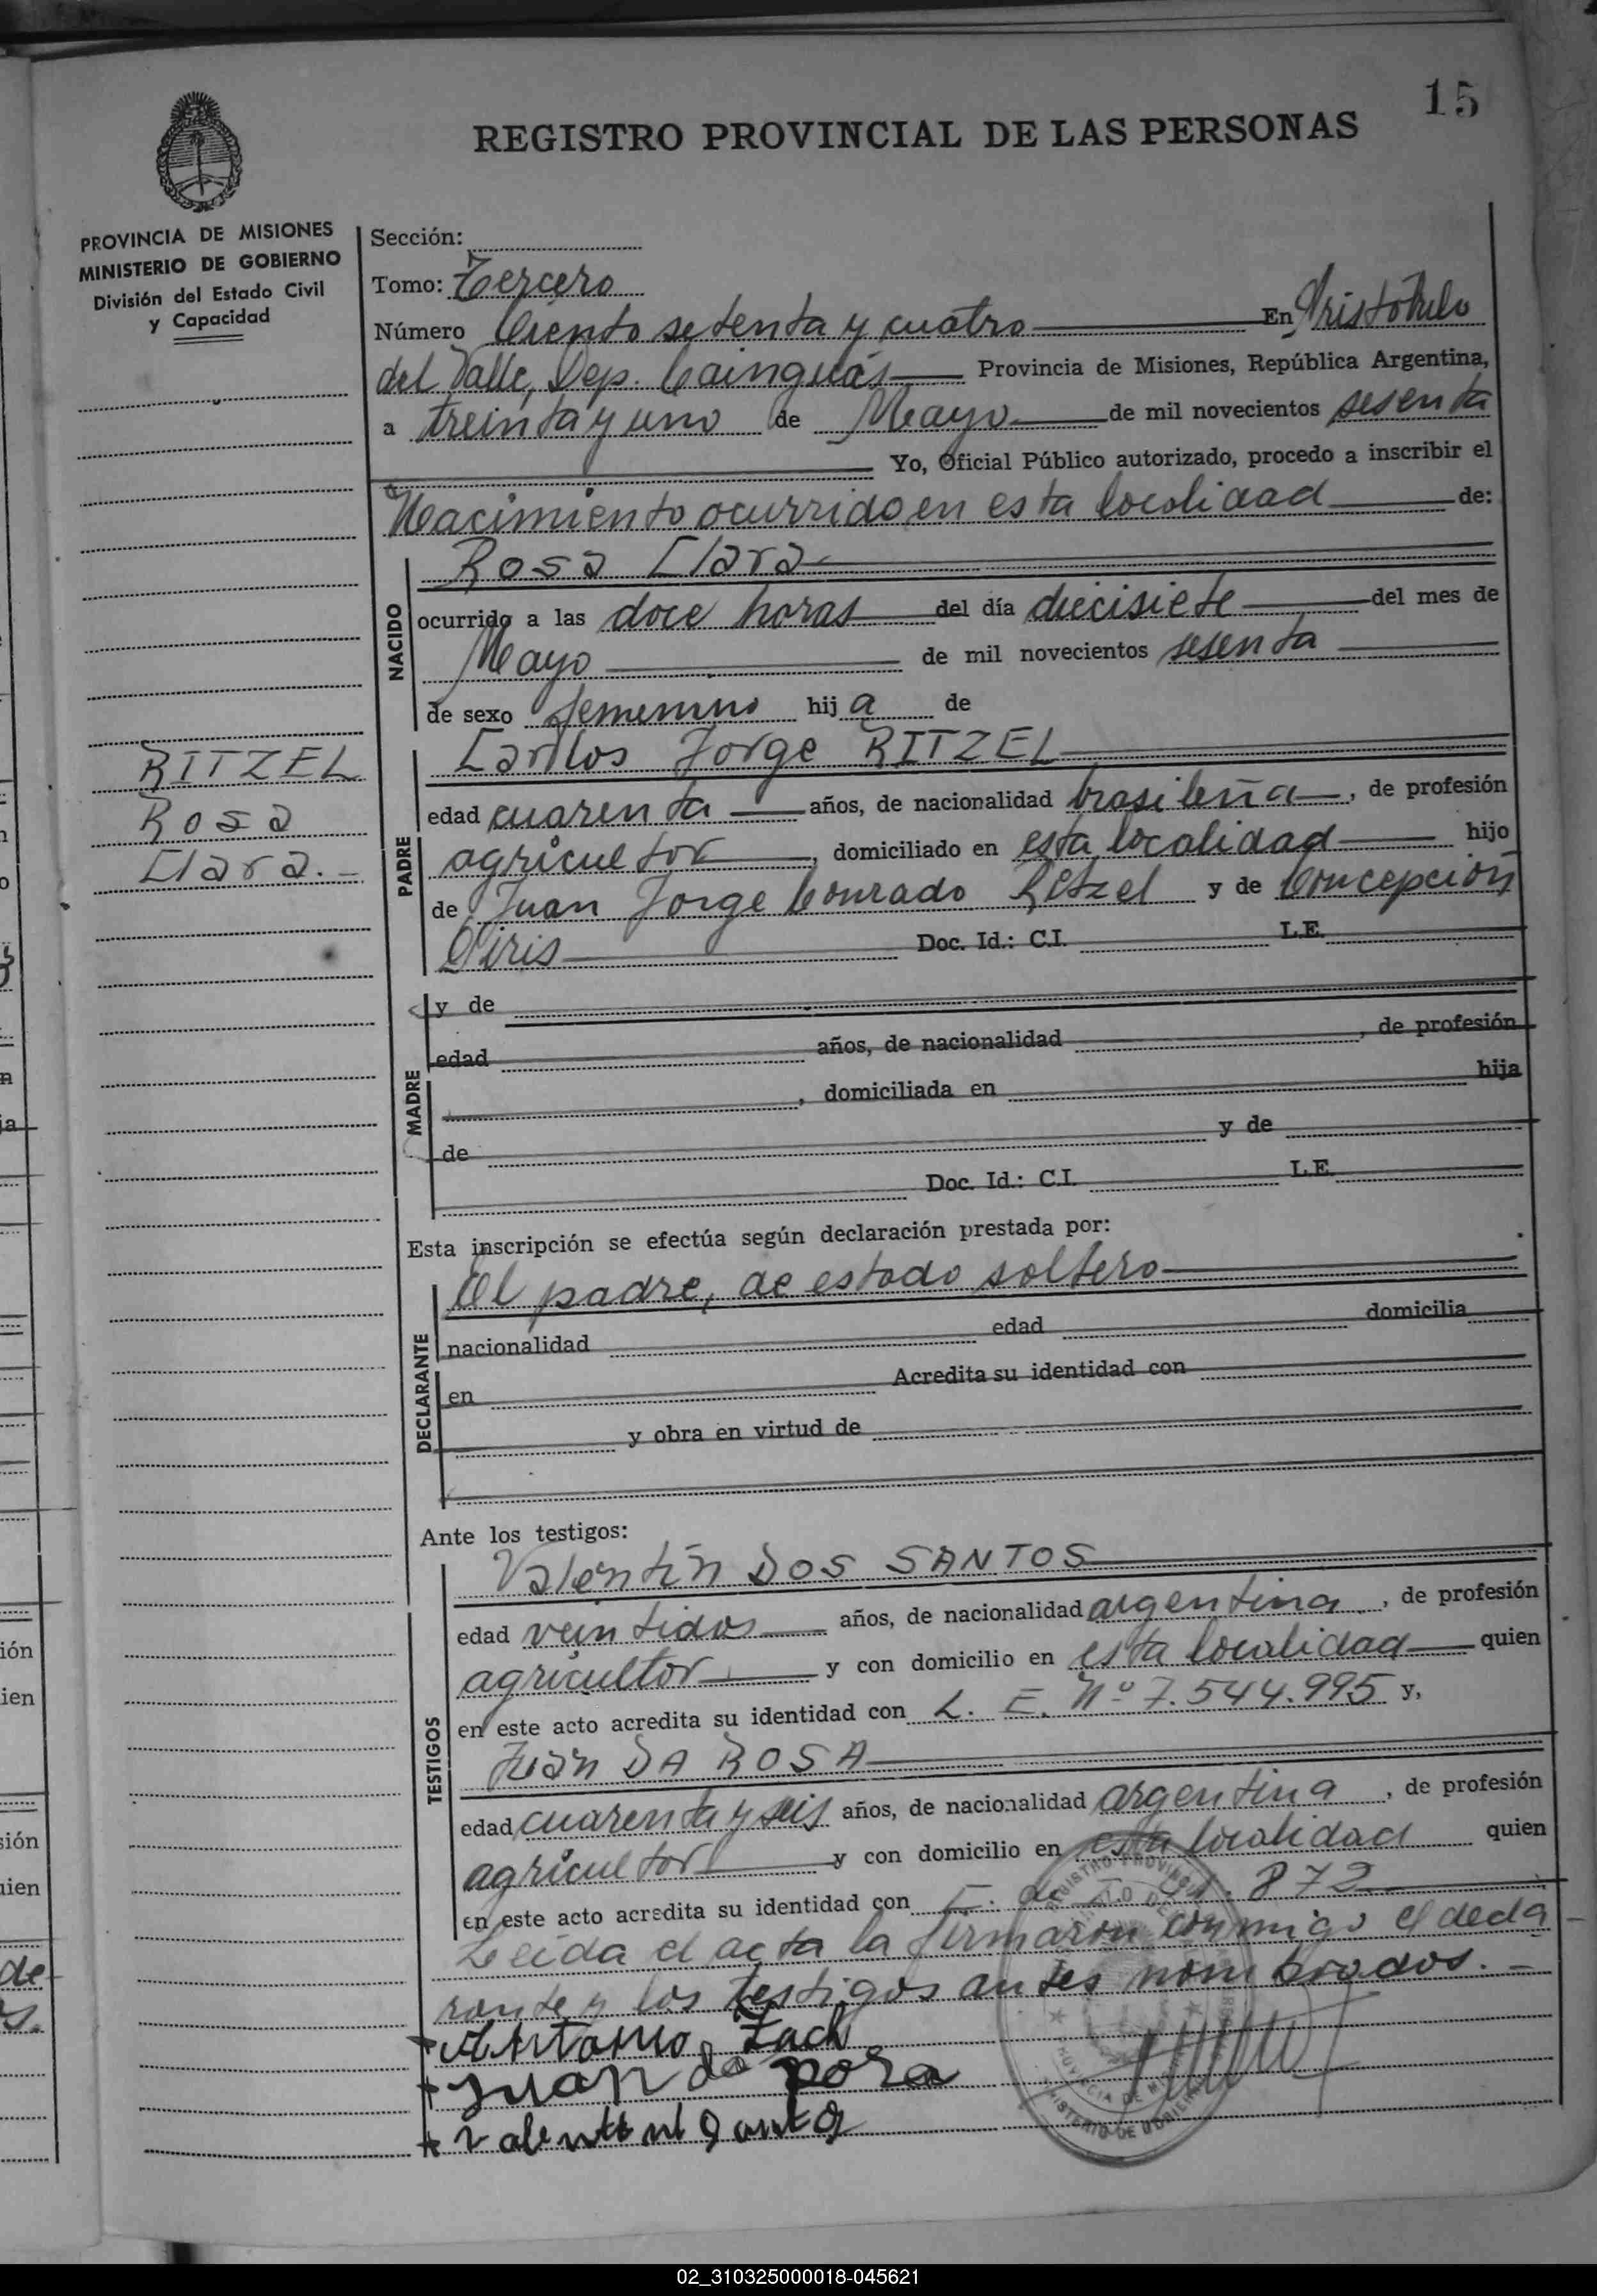 15
REGISTRO PROVINCIAL DE LAS PERSONAS
PROVINCIA DE MISIONES
MINISTERIO DE GOBIERNO
División del Estado Civil
y Capacidad
Sección:
Tomo: Tercero
Número Ciento setenta y cuatro En Aristóbulo
del Valle, Dep. Cainguás Provincia de Misiones, República Argentina,
a treinta y uno de Mayo de mil novecientos sesenta
Yo, Oficial Público autorizado, procedo a inscribir el
Nacimiento ocurrido en esta localidad de:
NACIDO
Rosa Clara
ocurrido a las doce horas del día diecisiete del mes de
Mayo de mil novecientos sesenta
de sexo femenino hija de
RITZEL
Rosa
Clara.-
PADRE
Carlos Jorge RITZEL
edad cuarenta años, de nacionalidad brasileña, de profesión
agricultor, domiciliado en esta localidad hijo
de Juan Jorge Conrado Ritzel y de Concepción
Piris Doc. Id.: C.I. L.E.
MADRE
y de
edad años, de nacionalidad , de profesión
, domiciliada en hija
de y de
Doc. Id.: C.I. L.E.
Esta inscripción se efectúa según declaración prestada por:
DECLARANTE
El padre, de estado soltero
nacionalidad edad domicilia
en Acredita su identidad con
y obra en virtud de
Ante los testigos:
TESTIGOS
Valentín DOS SANTOS
edad veintidos años, de nacionalidad argentina, de profesión
agricultor y con domicilio en esta localidad quien
en este acto acredita su identidad con L. E. Nº 7.544.995 y,
Juan DA ROSA
edad cuarenta y seis años, de nacionalidad argentina, de profesión
agricultor y con domicilio en esta localidad quien
en este acto acredita su identidad con 872
Leída el acta la firmaron conmigo el decla
rante y los testigos antes nombrados.-
Juan da
02_310325000018-045621